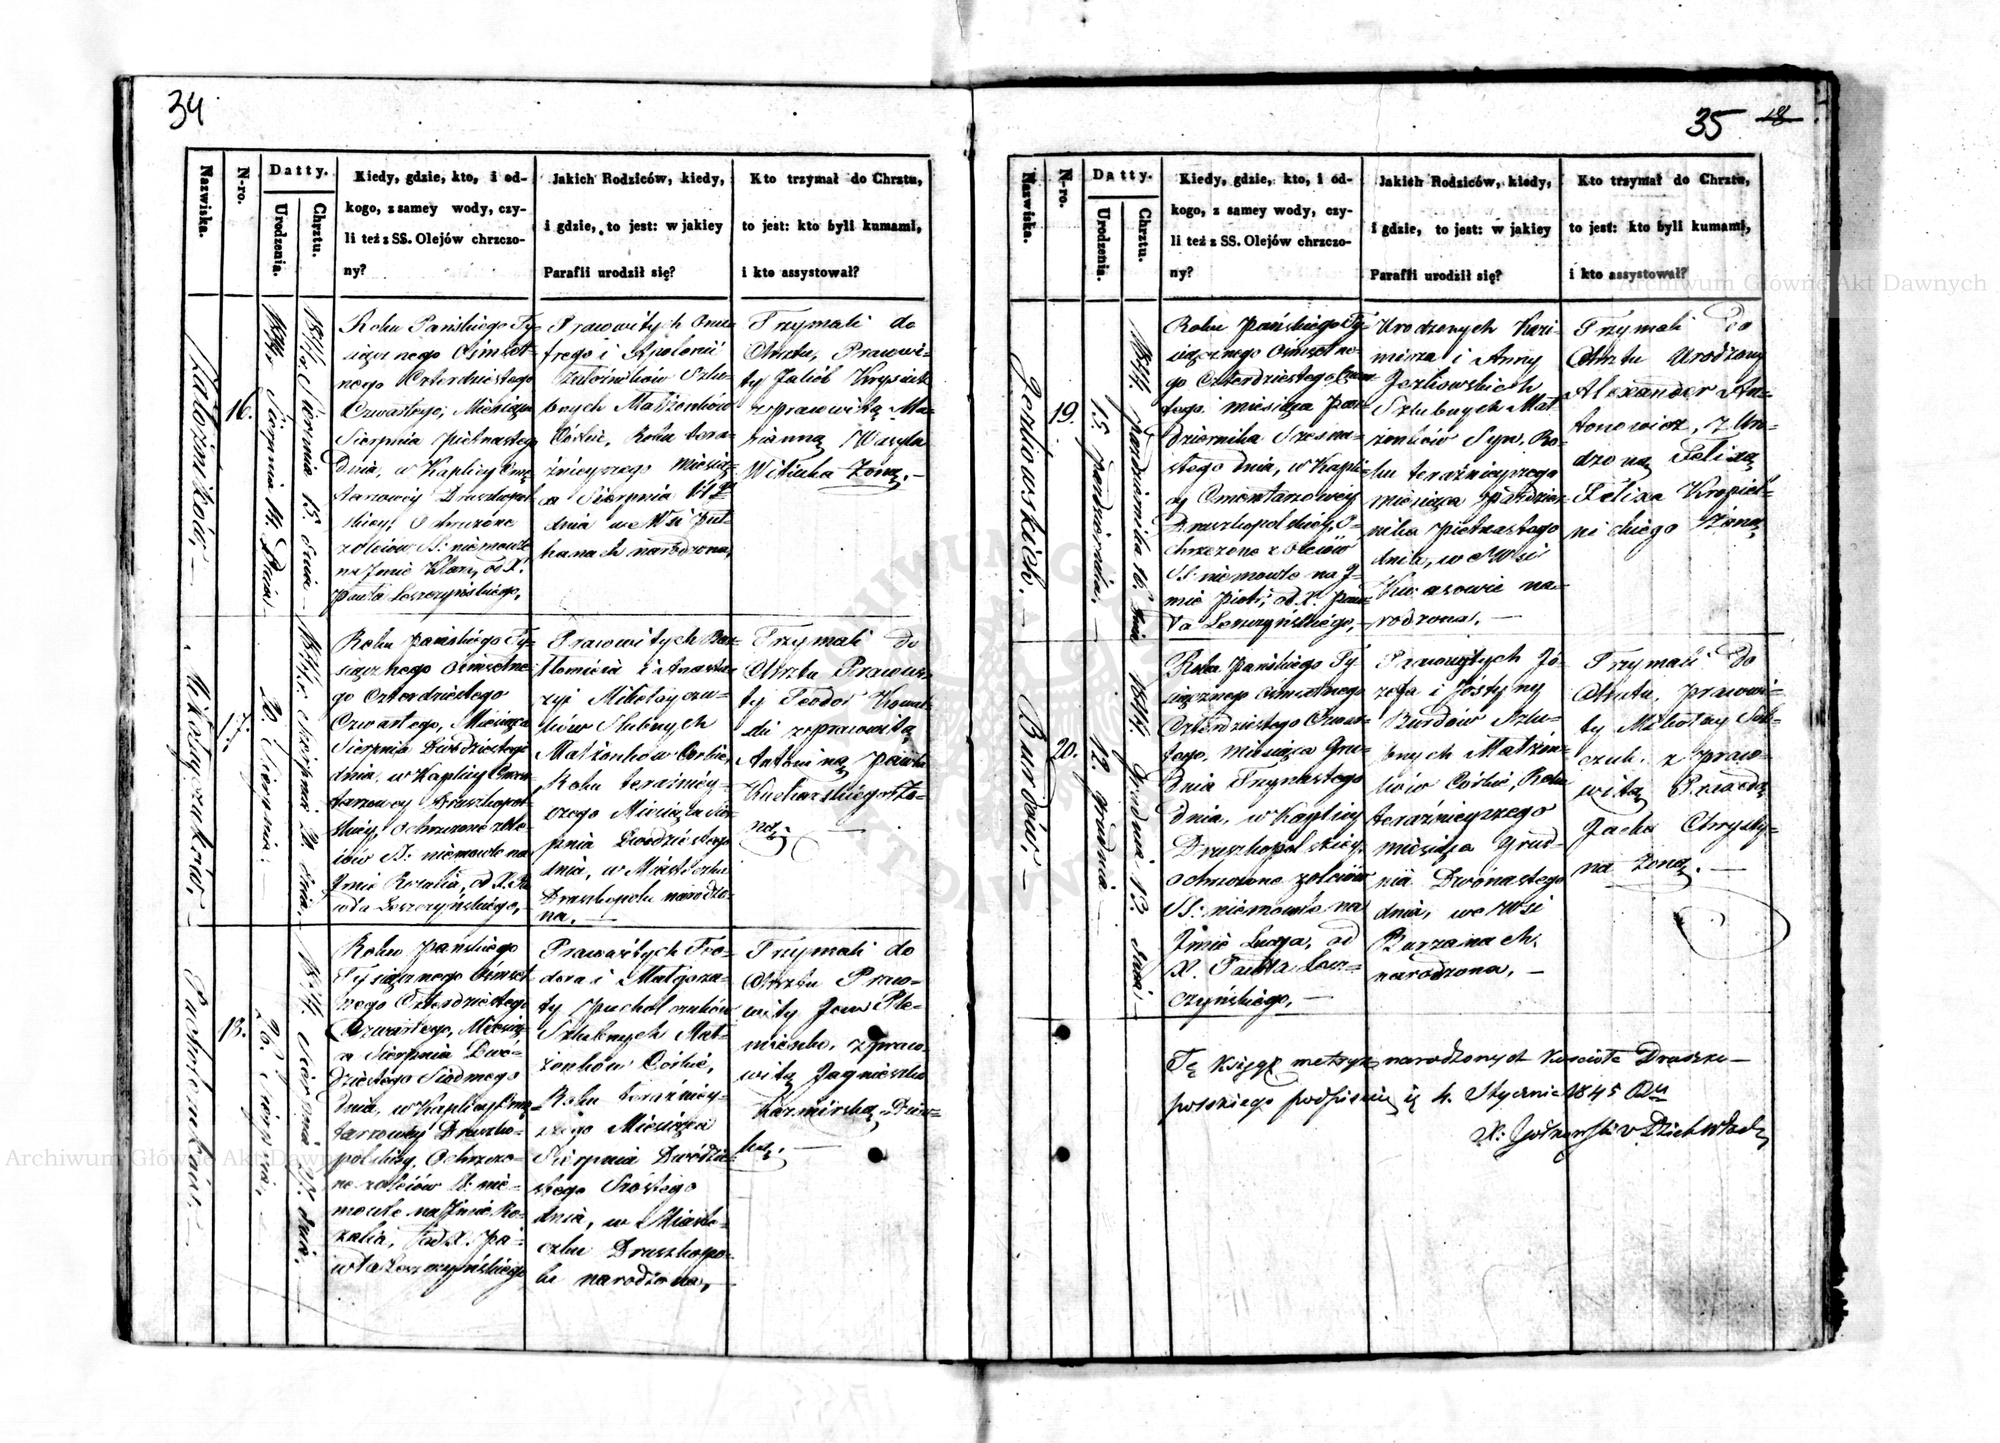 34
Nazwiska.
N-ro.
Datty.
Urodzenia.
Chrztu.
Kiedy, gdzie, kto, i od-
kogo, z samey wody, czy-
li też z SS. Olejów chrzczo-
ny?
Jakich Rodziców, kiedy,
i gdzie, to jest: w jakiey
Parafii urodził się?
Kto trzymał do Chrztu,
to jest: kto byli kumami,
i kto assystował?
16.
1844. Sierpnia 14. Dnia
1844. Sierpnia 15. dnia
Roku Pańskiego Ty-
siącznego Ośmset-
nego Czterdziestego
Czwartego, Miesiąca
Sierpnia piętnastego
Dnia, w Kaplicy Cmę-
tarzowey Druszkopol-
skiey, Ochrzczone
z oleiów SS: niemowle
na Jmie, od X.
Pawła Łoszczyńskiego,
Prawowitych Onu-
frego i Apolonii
Szlu-
bnych Małżonków
Córkę, Roku tera-
źnieyszego miesią-
ca Sierpnia 14go
dnia we Wsi
narodzona,
Trzymali do
Chrztu, Prawowi-
ty Jakób Krysiuk
z prawowitą Ma-
rianną Wasyla
Witiuka Żoną.—
Mikołayczuków.—
17.
20. Sierpnia.—
1844. Sierpnia 20 dnia.
Roku pańskiego Ty-
siącznego Ośmsetne-
go Czterdziestego
Czwartego, Miesiąca
Sierpnia Dwódziestego
dnia, w Kaplicy Cmen-
tarzowey Druszkopol-
skiey, ochrzczone z ole-
iów SS: niemowle na
Jmie Rozalia, od X. Pa-
wła Łoszczyńskiego,—
Prawowitych Bar-
tłomieia i Anasta-
zyi Mikołayczu-
ków Slubnych
Małżonków Córkę,
Roku teraźniey-
szego Miesiąca Sier-
pnia Dwódziestego
dnia, w Miasteczku
Druszkopolu narodzo-
na.—
Trzymali do
Chrztu Prawowi-
ty Teodor Kowal-
ski z prawowitą
Antoniną Pawła
Kucharskiego Żo-
ną.—
18.
26. Sierpnia.—
1844. Sierpnia 27. dnia.—
Roku pańskiego
Tysiącznego Ośmset-
nego Czterdziestego
Czwartego, Miesią-
ca Sierpnia Dwó-
dziestego Siódmego
dnia, w Kaplicy Cmę-
tarzowey Druszko-
polskiey, Ochrzczo-
ne z oleiów SS: nie-
mowle na Jmie Ro-
zalia, od X. Pa-
wła Łoszczyńskiego
Prawowitych Teo-
dora i Małgorza-
ty
Szlubnych Mał-
żonków Córkę,
Roku teraźniey-
szego Miesiąca
Sierpnia Dwódzie-
stego Szóstego
dnia, w Miaste-
czku Druszkopo-
lu narodzona,—
Trzymali do
Chrztu Prawo-
wity Jan Kle-
mieńko, z prawo-
witą Jagnieszką
Kazmirską Dziew-
ką.—
35
18
Nazwiska.
N-ro.
Datty.
Urodzenia.
Chrztu.
Kiedy, gdzie, kto, i od-
kogo, z samey wody, czy-
li też z SS. Olejów chrzczo-
ny?
Jakich Rodziców, kiedy,
i gdzie, to jest: w jakiey
Parafii urodził się?
Kto trzymał do Chrztu,
to jest: kto byli kumami,
i kto assystował?
Jezłowskich.—
19.
15. październia.—
1844. października 16. dnia
Roku pańskiego Ty-
siącznego Ośmsetne-
go Czterdziestego Czwar-
tego, miesiąca paź-
dziernika Szesna-
stego dnia, w Kapli-
cy Cmentarzowey
Druszkopolskiey, O-
chrzczone z Oleiów
SS: niemowle na J-
mie Piotr, od X. Paw-
ła Łoszczyńskiego,—
Urodzonych Kazi-
mierza i Anny
Jezłowskich
Szlubnych Mał-
żonków Syn, Ro-
ku teraźnieyszego
miesiąca paździer-
nika piętnastego
dnia, we Wsi
na-
rodzona.—
Trzymali do
Chrztu Urodzony
Alexander An-
tonowicz, z Uro-
dzoną Felixą
Felixa Kropiel-
nickiego Żoną
Burdów.—
20.
12. grudnia.—
1844. grudnia 13. dnia.—
Roku pańskiego Ty-
siącznego Ośmsetnego
Czterdziestego Czwar-
tego, miesiąca Gru-
dnia Trzynastego
dnia, w Kaplicy
Druszkopolskiey,
ochrzczone z oleiów
SS: niemowle na
Jmie Łucya, od
X. Pawła Łosz-
czyńskiego.—
Prawowitych Jó-
zefa i Jóstyny
Burdów Szlu-
bnych Małżon-
ków Córkę, Roku
teraźnieyszego
miesiąca Grud-
nia Dwónastego
dnia, we Wsi
Burzanach
narodzona,—
Trzymali do
Chrztu, prawowi-
ty Mikołay
z prawo-
witą
Jacka Chrysty-
na Żoną.—
Tę Księgę metryk narodzonych Kościoła Druszko-
polskiego podpisuię 4. Stycznia 1845 Ru
Archiwum Główne Akt Dawnych
Archiwum Główne Akt Dawnych